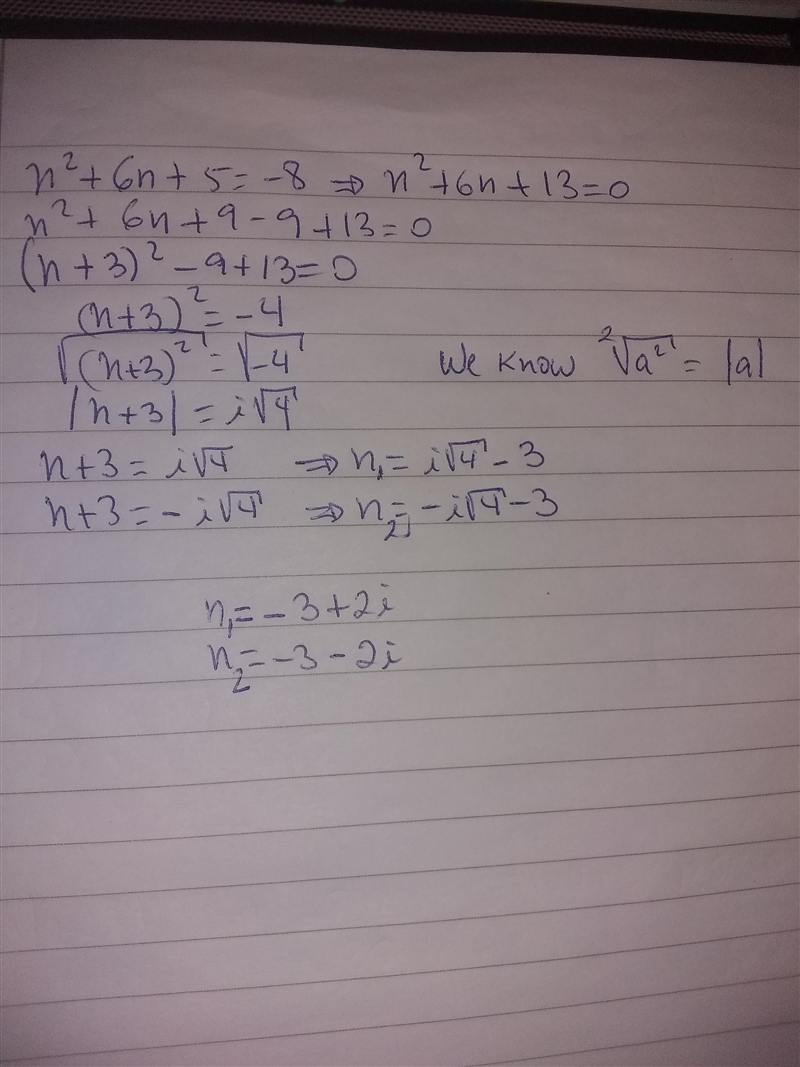 n² + 6n + 5 = -8 ⇒ n² + 6n + 13 = 0
n² + 6n + 9 - 9 + 13 = 0
(n + 3)² - 9 + 13 = 0
(n+3)² = -4
√(n+3)² = √-4 We know ²√a² = |a|
|n+3| = i√4
n+3 = i√4 ⇒ n₁ = i√4 - 3
n+3 = -i√4 ⇒ n₂ = -i√4 - 3
n₁ = -3 + 2i
n₂ = -3 - 2i